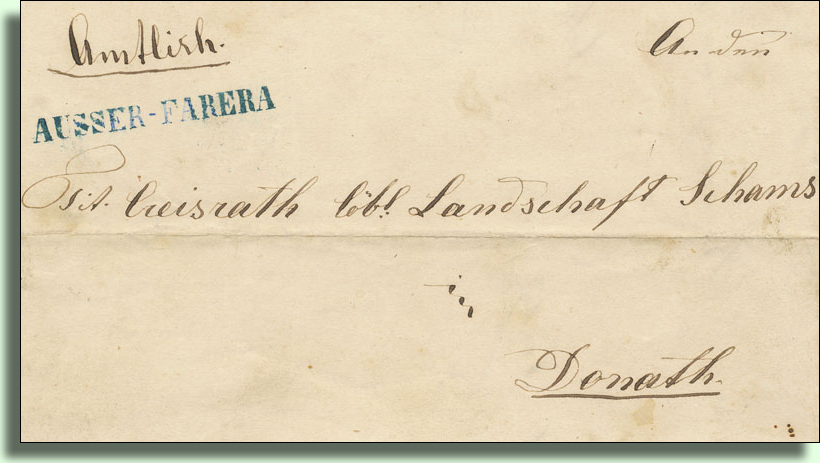 Amtlich.
An den
AUSSER-FARERA
Tit. Creisrath löbl. Landschaft Schams
in
Donath.